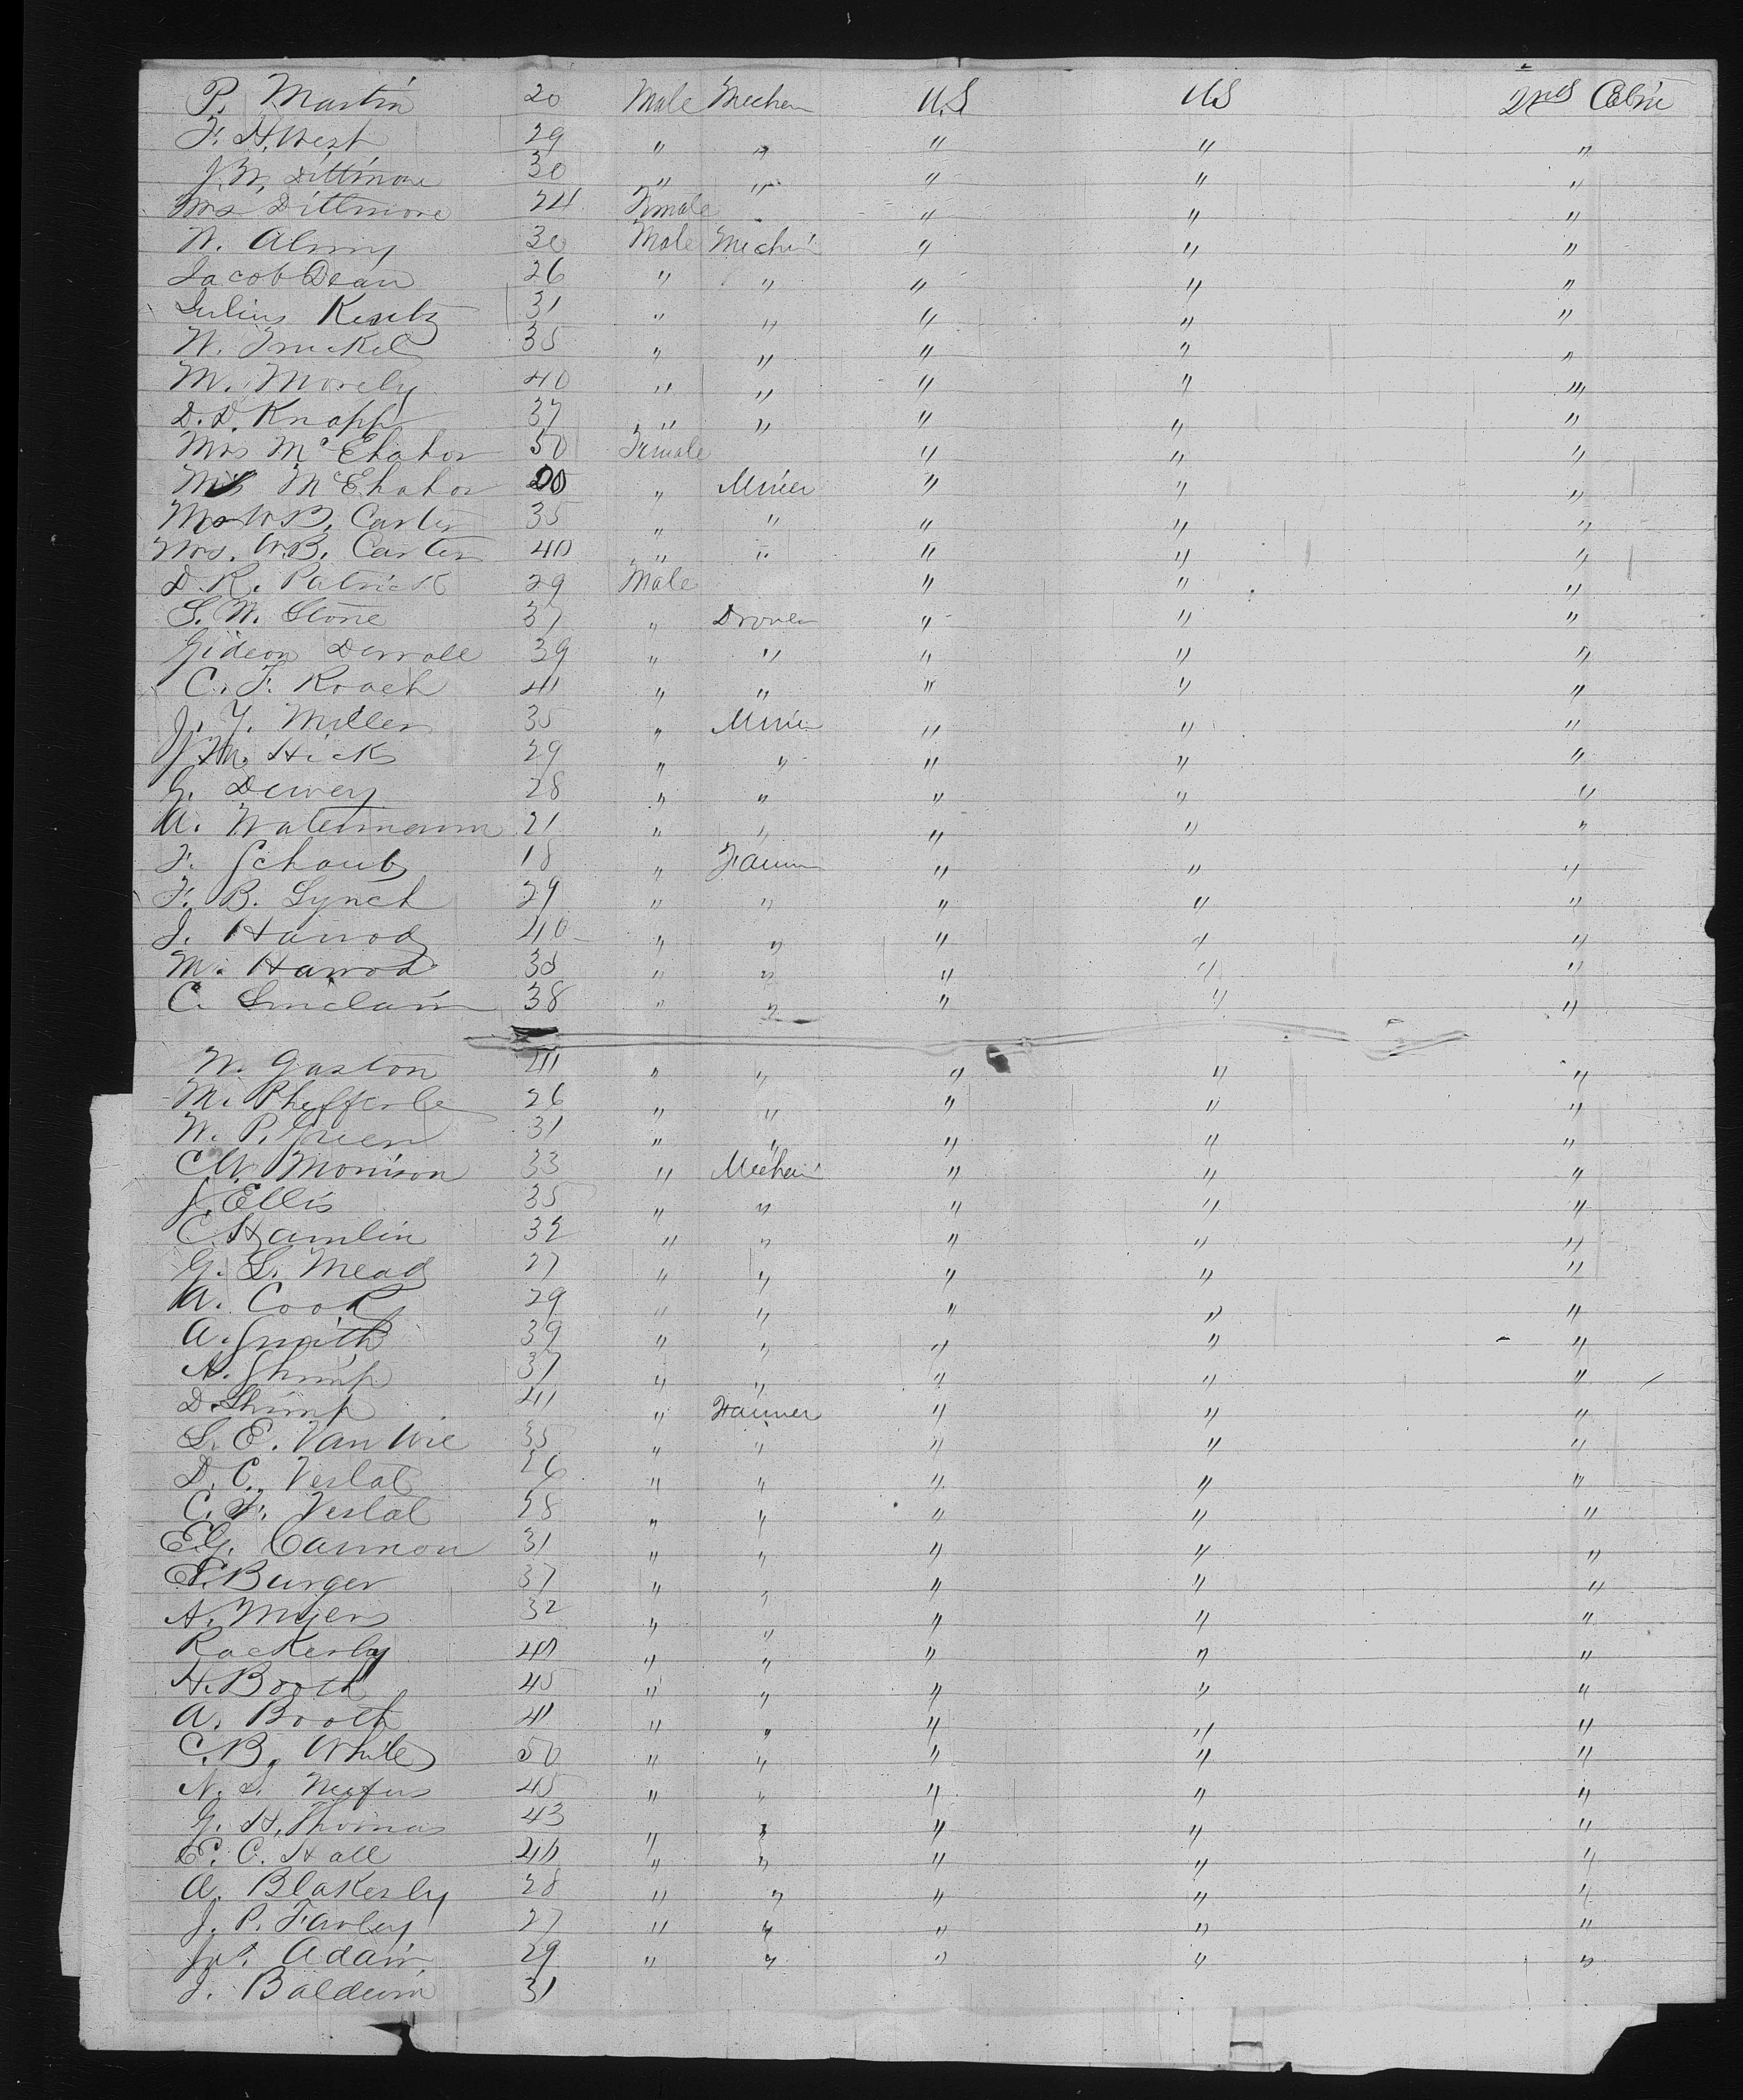 P. Martin 20 Male Mechan U.S US 2nd Cabin
F. H. West 29 " " " " "
J. W. Dittmore 30 " " " " "
Mrs Dittmore 24 Female " " "
W. Almy 30 Male Mechn " " "
Jacob Dean 26 " " " " "
Julius 31 " " " " "
W. 35 " " " " "
M. Morely 40 " " " " "
D. D. Knapp 37 " " " " "
Mrs 50 Female " " "
20 " Miner " " "
W. B. Carter 35 " " " " "
Mrs. W. B. Carter 40 " " " " "
D. R. Patrick 29 Male " " "
S. W. Stone 37 " Drover " " "
Gideon 39 " " " " "
C. F. Roach 41 " " " " "
J. Y. Miller 35 " Miner " " "
J. M. Hicks 29 " " " " "
G. Dewey 28 " " " " "
A. Watermann 21 " " " " "
F. Schaub 18 " Farm " " "
F. B. Lynch 29 " " " " "
J. Harrod 40 " " " " "
M. Harrod 38 " " " " "
C. Sinclair 38 " " " " "
W. Gaston 41 " " " " "
M. Phefferle 26 " " " " "
W. P. Green 31 " " " " "
C. W. Morrison 33 " Mechan " " "
J. Ellis 35 " " " " "
C. Hamlin 32 " " " " "
G. L. Mead 27 " " " " "
A. Cook 29 " " " " "
A. Smith 39 " " " " "
A. Shimp 37 " " " " "
D. Shimp 41 " Farmer " " "
L. E. Van Wie 35 " " " " "
D. C. Vestal 26 " " " " "
C. F. Vestal 28 " " " " "
E. G. Cannon 31 " " " " "
Burger 37 " " " " "
A. Myers 32 " " " " "
Rackerby 40 " " " " "
H. Booth 45 " " " " "
A. Booth 41 " " " " "
C. B. White 50 " " " " "
N. D. 45 " " " " "
G. H. Thomas 43 " " " " "
E. C. Hall 40 " " " " "
A. Blakesly 28 " " " " "
J. P. Farley 27 " " " " "
Adair 29 " " " " "
J. Baldwin 31